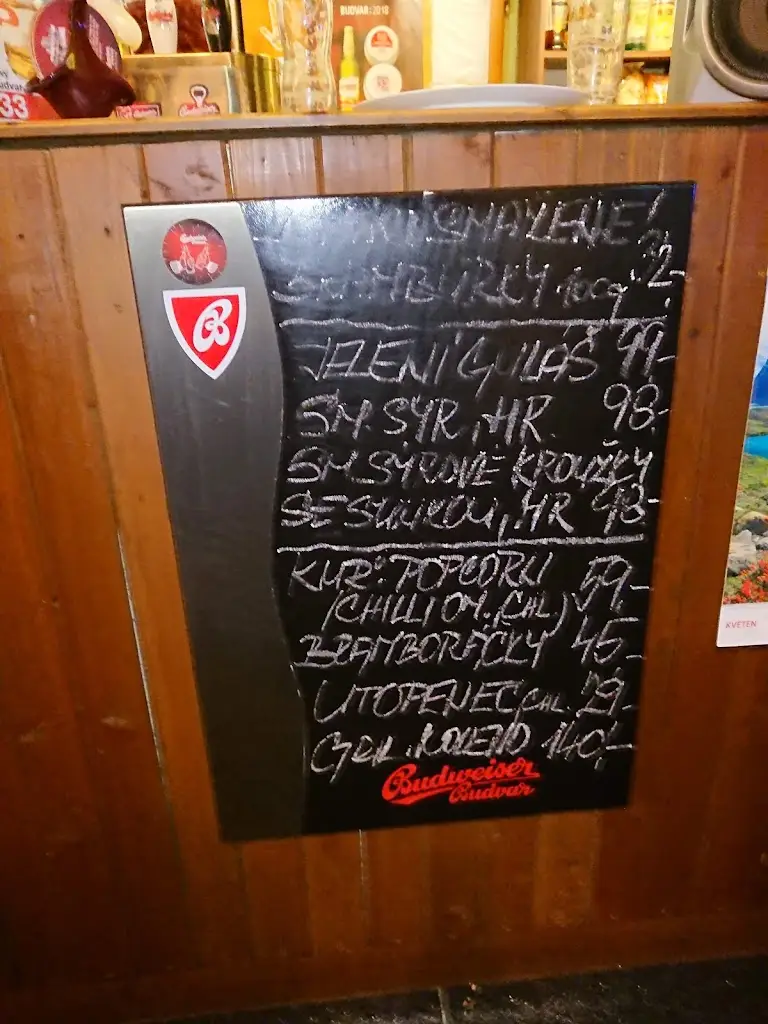 BUDVAR 2018
33
SMAŽENÉ!
100g 32,-
JELENÍ GULÁŠ 99,-
SM. SÝR, HR. 98,-
SM. SÝROVÉ KROUŽKY
SE ŠUNKOU, HR 98,-
KUŘ. POPCORN 59,-
(CHILLI OM. CHL)
BRAMBORÁČKY 45,-
UTOPENEC, CHL. 29,-
GRIL. KOLENO 140,-
Budweiser
Budvar
KVĚTEN